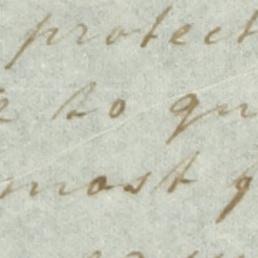 protect
to qu
most